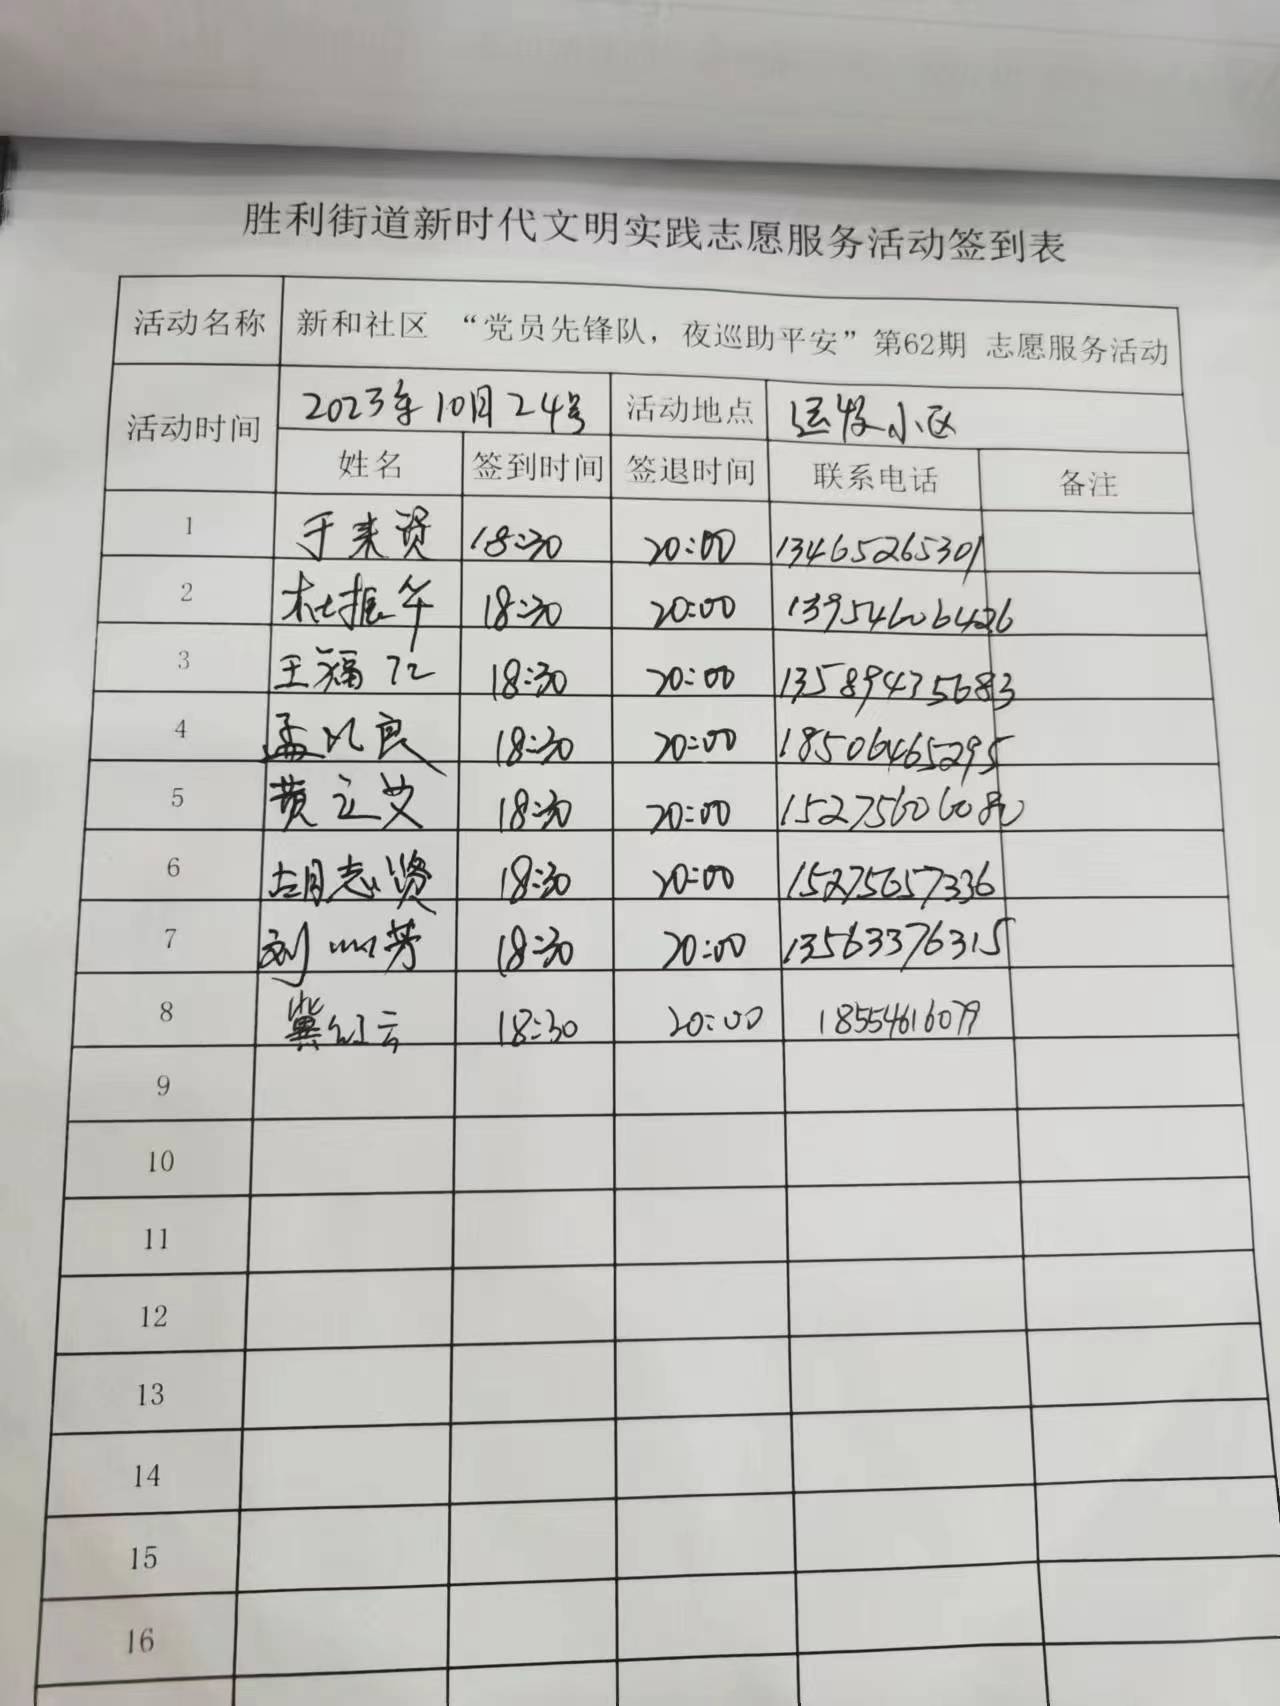 胜利街道新时代文明实践志愿服务活动签到表
活动名称 新和社区 “党员先锋队，夜巡助平安”第62期 志愿服务活动
活动时间 2023年10月24号 活动地点 运发小区
姓名 签到时间 签退时间 联系电话 备注
1 于来贤 18:30 20:00 13465265301
2 杜振华 18:30 20:00 13954606426
3 王福仁 18:30 20:00 13589435683
4 孟以良 18:30 20:00 18506465295
5 黄立艾 18:30 20:00 15275606080
6 胡志贤 18:30 20:00 15275657336
7 刘 芳 18:30 20:00 13563376315
8 冀红云 18:30 20:00 18554616079
9
10
11
12
13
14
15
16